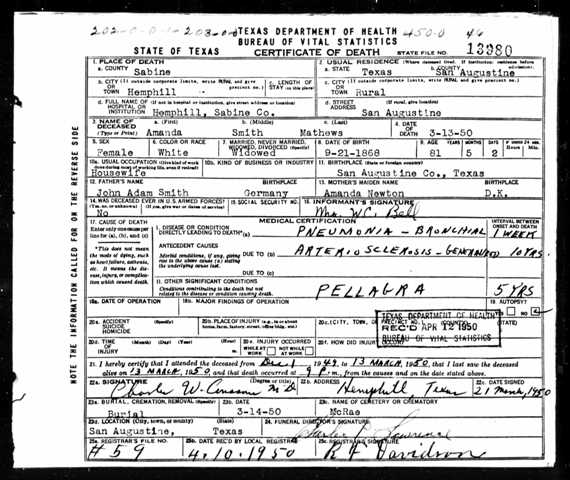 202-0-0-1-203-0-0 TEXAS DEPARTMENT OF HEALTH 450-0 46
BUREAU OF VITAL STATISTICS
STATE OF TEXAS CERTIFICATE OF DEATH STATE FILE NO. 13980
1. PLACE OF DEATH 2. USUAL RESIDENCE (Where deceased lived. If institution: residence before admission)
a. COUNTY Sabine a. STATE Texas b. COUNTY San Augustine
b. CITY (If outside corporate limits, write RURAL and give precinct no.) OR TOWN Hemphill c. LENGTH OF STAY (in this place) c. CITY (If outside corporate limits, write RURAL and give precinct no.) OR TOWN Rural
d. FULL NAME OF HOSPITAL OR INSTITUTION (If not in hospital or institution, give street address or location) Hemphill, Sabine Co. d. STREET ADDRESS (If rural, give location) San Augustine
3. NAME OF DECEASED (Type or Print) a. (First) Amanda b. (Middle) Smith c. (Last) Mathews 4. DATE OF DEATH 3-13-50
5. SEX Female 6. COLOR OR RACE White 7. MARRIED, NEVER MARRIED, WIDOWED, DIVORCED (Specify) Widowed 8. DATE OF BIRTH 9-21-1868 9. AGE YEARS 81 MONTHS 5 DAYS 2
10a. USUAL OCCUPATION (Give kind of work done during most of working life, even if retired) Housewife 10b. KIND OF BUSINESS OR INDUSTRY 11. BIRTHPLACE (State or foreign country) San Augustine Co., Texas
12. FATHER'S NAME John Adam Smith BIRTHPLACE Germany 13. MOTHER'S MAIDEN NAME Amanda Newton BIRTHPLACE D.K.
14. WAS DECEASED EVER IN U.S. ARMED FORCES? (Yes, no, or unknown) No (If yes, give war or dates of service) 15. SOCIAL SECURITY NO. 16. INFORMANT'S SIGNATURE Mrs W.C. Bell
17. CAUSE OF DEATH MEDICAL CERTIFICATION INTERVAL BETWEEN ONSET AND DEATH
Enter only one cause per line for (a), (b), and (c) I. DISEASE OR CONDITION DIRECTLY LEADING TO DEATH* (a) PNEUMONIA - BRONCHIAL 1 WEEK
*This does not mean the mode of dying, such as heart failure, asthenia, etc. It means the disease, injury, or complication which caused death. ANTECEDENT CAUSES
Morbid conditions, if any, giving rise to the above cause (a) stating the underlying cause last. DUE TO (b) ARTERIOSCLEROSIS - GENERALIZED 10 YRS.
DUE TO (c)
II. OTHER SIGNIFICANT CONDITIONS
Conditions contributing to the death but not related to the disease or condition causing death. PELLAGRA 5 YRS
18a. DATE OF OPERATION 18b. MAJOR FINDINGS OF OPERATION 19. AUTOPSY? YES NO
20a. ACCIDENT SUICIDE HOMICIDE (Specify) 20b. PLACE OF INJURY (e.g., in or about home, farm, factory, street, office bldg., etc.) 20c. (CITY, TOWN, OR PRECINCT NO.)
TEXAS DEPARTMENT OF HEALTH
REC'D APR 12 1950
BUREAU OF VITAL STATISTICS
20d. TIME OF INJURY (Month) (Day) (Year) (Hour) 20e. INJURY OCCURRED WHILE AT WORK NOT WHILE AT WORK
21. I hereby certify that I attended the deceased from Dec 1 1949, to 13 MARCH, 1950, that I last saw the deceased
alive on 13 MARCH, 1950, and that death occurred at 9 P.m., from the causes and on the date stated above.
22a. SIGNATURE (Degree or title) M D 22b. ADDRESS Hemphill Texas 22c. DATE SIGNED 21 March, 1950
23a. BURIAL, CREMATION, REMOVAL (Specify) Burial 23b. DATE 3-14-50 23c. NAME OF CEMETERY OR CREMATORY McRae
23d. LOCATION (City, town, or county) (State) San Augustine, Texas 24. FUNERAL DIRECTOR'S SIGNATURE
25a. REGISTRAR'S FILE NO. #59 25b. DATE REC'D BY LOCAL REGISTRAR 4-10-1950 25c. REGISTRAR'S SIGNATURE R F Davidson
NOTE THE INFORMATION CALLED FOR ON THE REVERSE SIDE